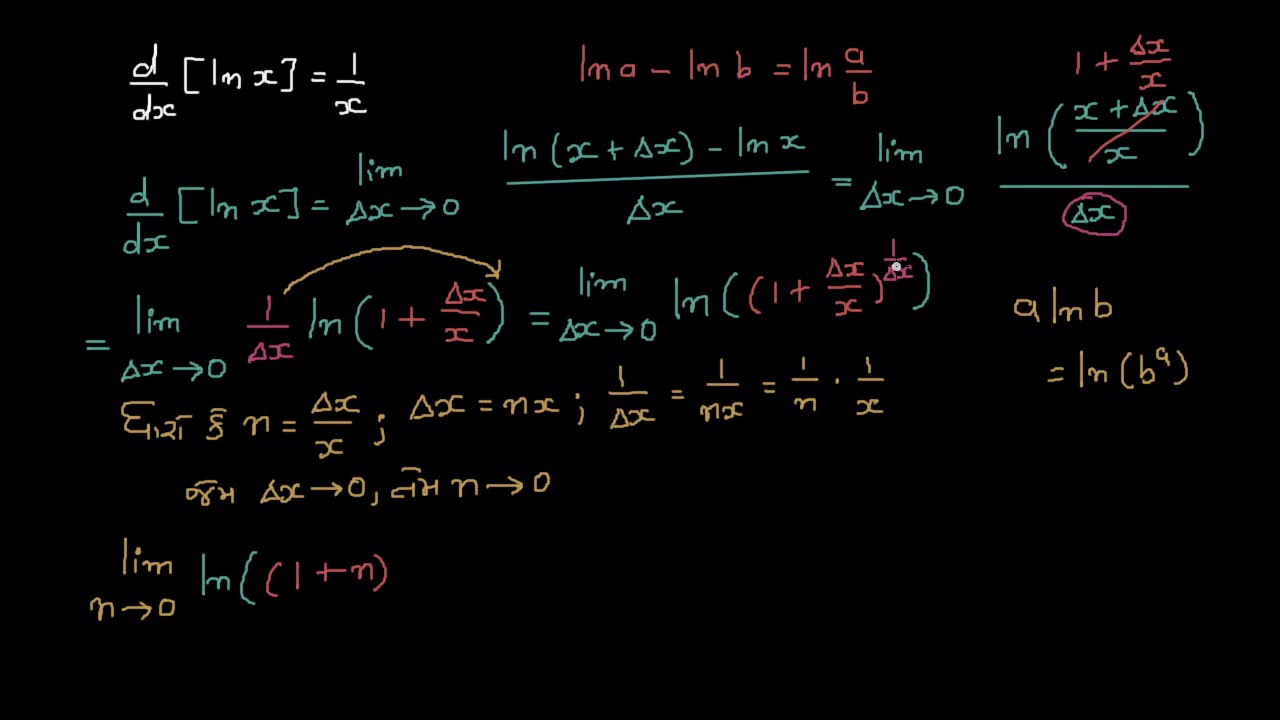 d/dx [ln x] = 1/x
ln a − ln b = ln a/b
1 + Δx/x
d/dx [ln x] = lim Δx→0 (ln (x + Δx) − ln x)/Δx = lim Δx→0 ln ((x + Δx)/x)/Δx
= lim Δx→0 1/Δx ln (1 + Δx/x) = lim Δx→0 ln ((1 + Δx/x)^(1/Δx))
a ln b
= ln (b^a)
ધારો કે n = Δx/x ; Δx = nx ; 1/Δx = 1/nx = 1/n · 1/x
જેમ Δx→0, તેમ n→0
lim n→0 ln ((1 + n)